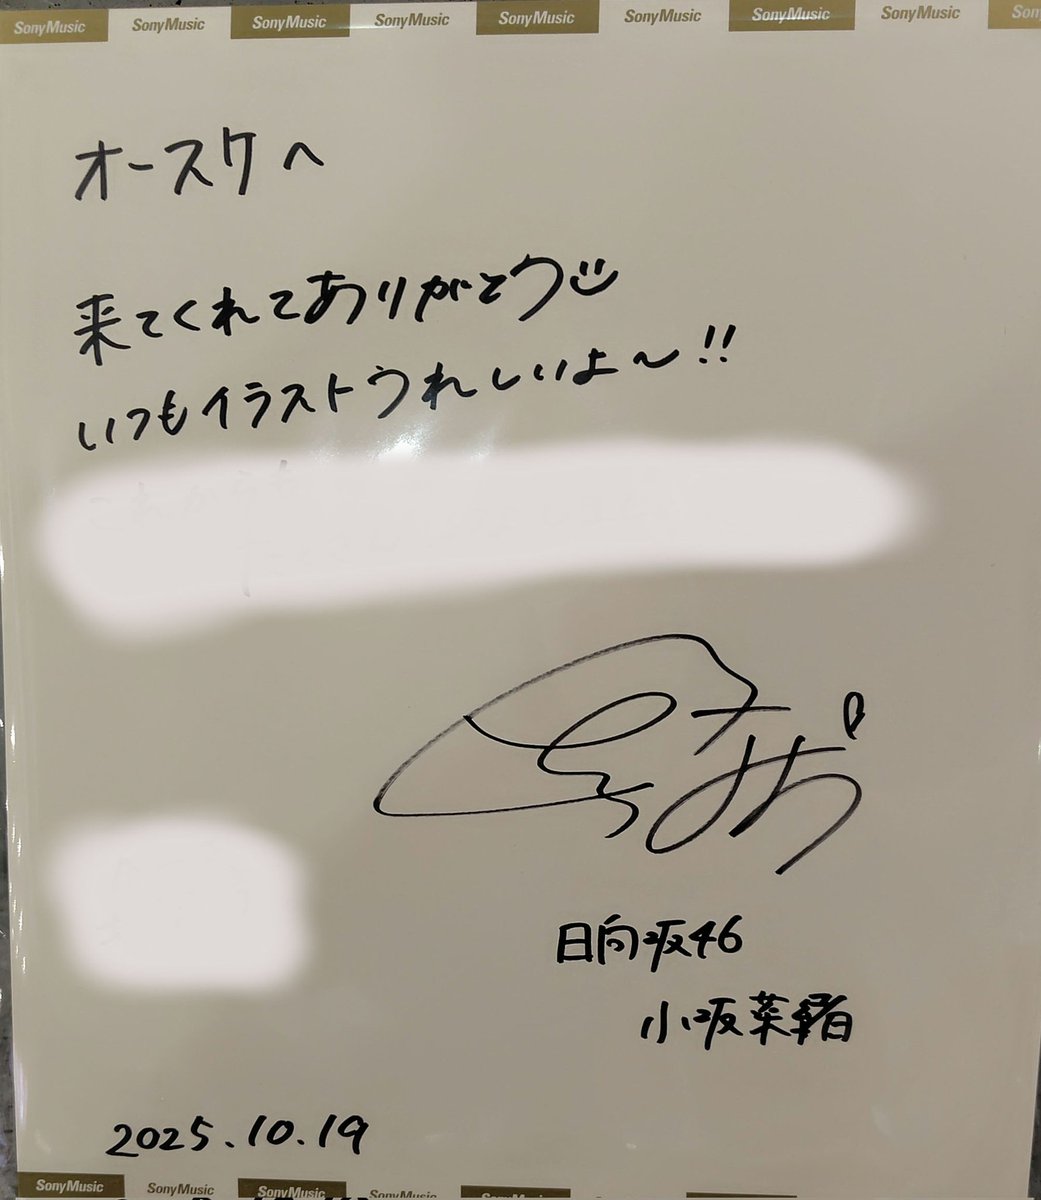 SonyMusic SonyMusic SonyMusic SonyMusic SonyMusic SonyMusic SonyMusic SonyMusic
オースケへ
来てくれてありがとう
いつもイラストうれしいよ〜!!
日向坂46
小坂菜緒
2025.10.19
SonyMusic SonyMusic SonyMusic SonyMusic SonyMusic